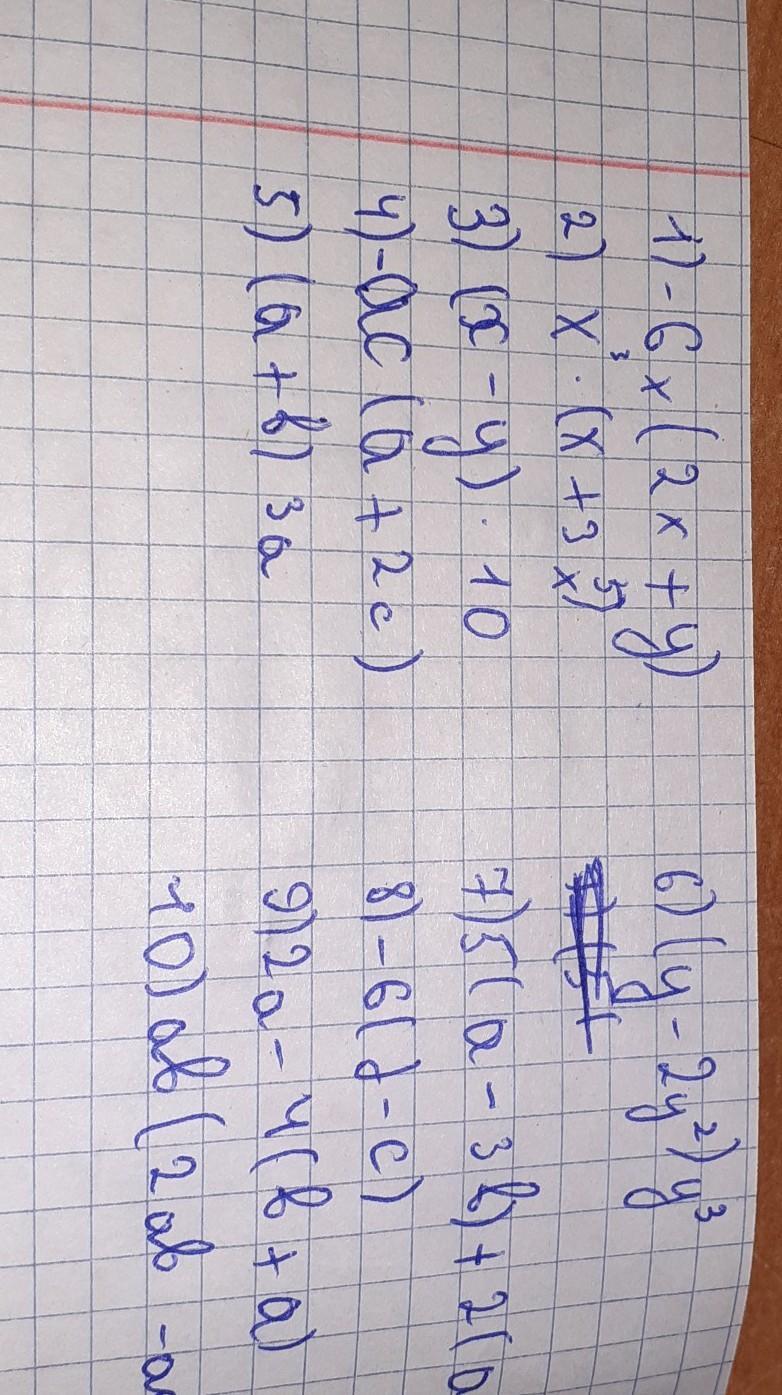 1) -6x(2x+y)
2) x³·(x+3x⁵)
3) (x-y)·10
4) -ac(a+2c)
5) (a+b)3a
6) (y-2y²)y³
7) 5(a-3b)+2(a
8) -6(d-c)
9) 2a-4(b+a)
10) ab(2ab-a